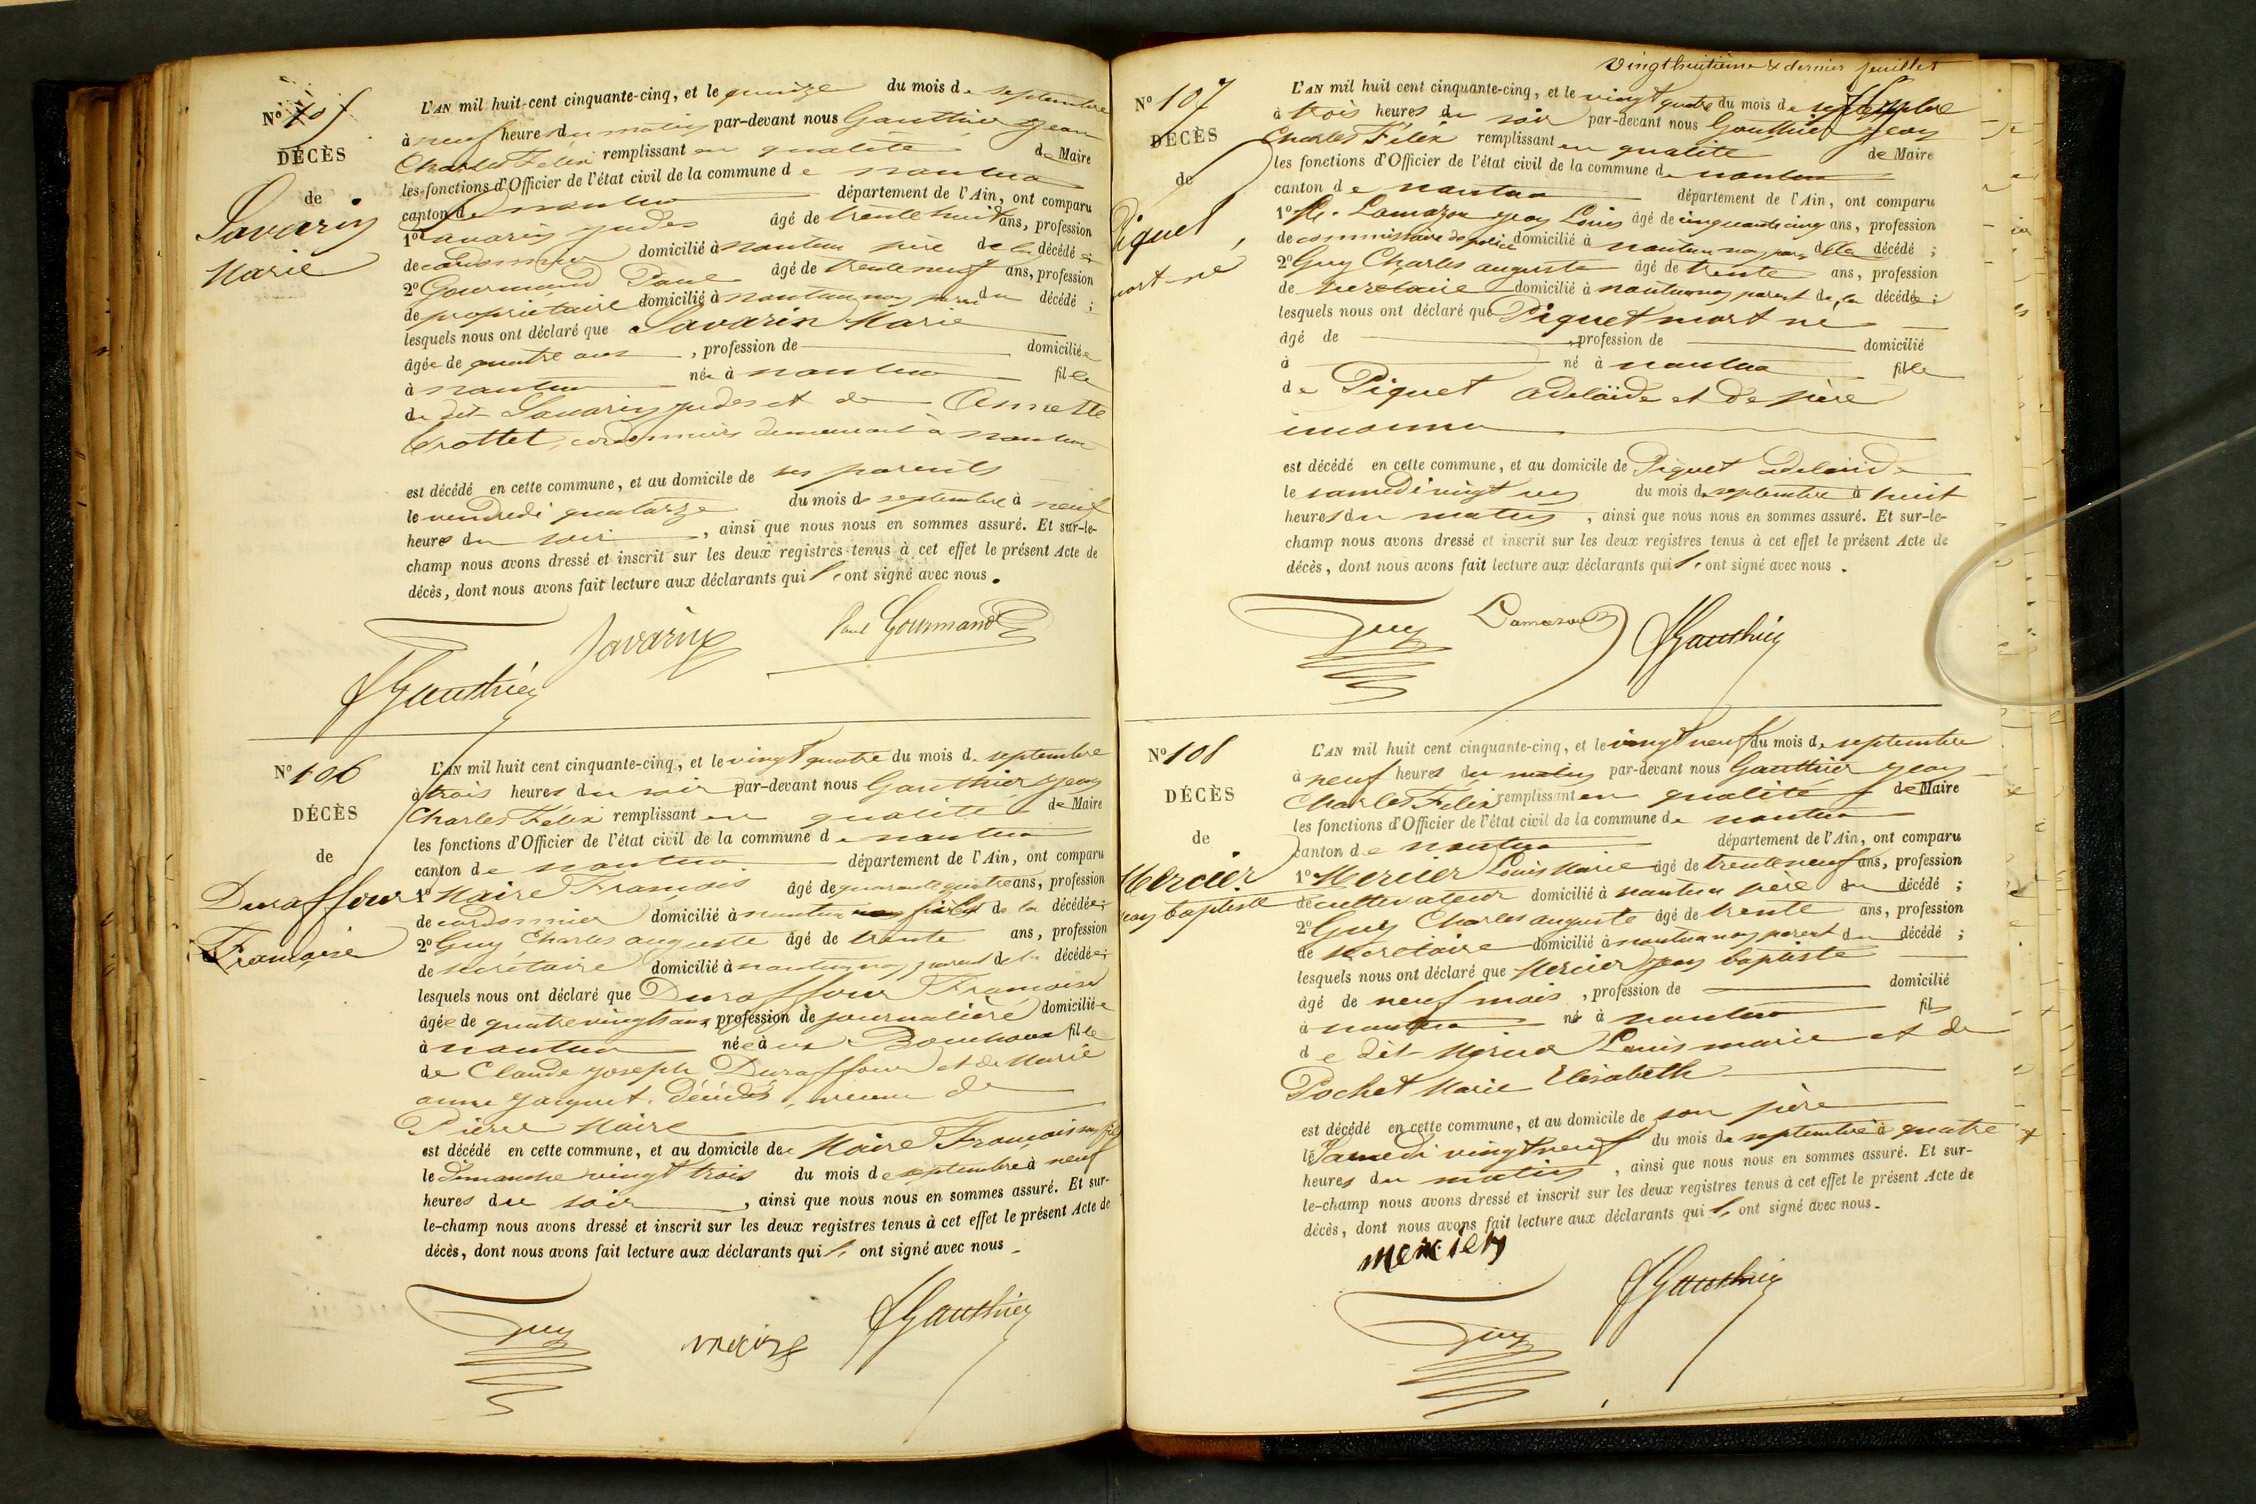 N° 105
DÉCÈS
de
Savarin
Marie
L'AN mil huit cent cinquante-cinq, et le quinze du mois de septembre
à neuf heures du matin par-devant nous Gauthier Jean
Charles Félix remplissant en qualité de Maire
les fonctions d'Officier de l'état civil de la commune de nantua
canton de nantua département de l'Ain, ont comparu
1° Savarin Judes âgé de trente huit ans, profession
de cordonnier domicilié à nantua père de la décédée ;
2° Gourmand Paul âgé de trente neuf ans, profession
de propriétaire domicilié à nantua non parent du décédé ;
lesquels nous ont déclaré que Savarin Marie
âgée de quatre ans , profession de domiciliée
à nantua née à nantua fille
du dit Savarin Judes et de Annette
Crottet, cordonniers demeurant à nantua
est décédé en cette commune, et au domicile de ses parents
le vendredi quatorze du mois de septembre à neuf
heures du soir , ainsi que nous nous en sommes assuré. Et sur-le-
champ nous avons dressé et inscrit sur les deux registres tenus à cet effet le présent Acte de
décès, dont nous avons fait lecture aux déclarants qui l'ont signé avec nous.
Savarin Paul Gourmand
Gauthier
N° 106
DÉCÈS
de
Duraffour
Françoise
L'AN mil huit cent cinquante-cinq, et le vingt quatre du mois de septembre
à trois heures du soir par-devant nous Gauthier Jean
Charles Félix remplissant en qualité de Maire
les fonctions d'Officier de l'état civil de la commune de nantua
canton de nantua département de l'Ain, ont comparu
1° Maire François âgé de quarante quatre ans, profession
de cordonnier domicilié à nantua fils de la décédée ;
2° Guy Charles auguste âgé de trente ans, profession
de secrétaire domicilié à nantua non parent de la décédée ;
lesquels nous ont déclaré que Duraffour Françoise
âgée de quatrevingts ans profession de journalière domiciliée
à nantua née à Bouhoux fille
de Claude Joseph Duraffour et de Marie
anne Jacquet, décédés, veuve de
Pierre Maire
est décédé en cette commune, et au domicile de Maire François son fils
le dimanche vingt trois du mois de septembre à neuf
heures du soir , ainsi que nous nous en sommes assuré. Et sur-
le-champ nous avons dressé et inscrit sur les deux registres tenus à cet effet le présent Acte de
décès, dont nous avons fait lecture aux déclarants qui l'ont signé avec nous
Guy Gauthier
Vingthuitième & dernier feuillet
N° 107
DÉCÈS
de
Piquet
mort-né
L'AN mil huit cent cinquante-cinq, et le vingt quatre du mois de septembre
à trois heures du soir par-devant nous Gauthier Jean
Charles Félix remplissant en qualité de Maire
les fonctions d'Officier de l'état civil de la commune de nantua
canton de nantua département de l'Ain, ont comparu
1° Lamazou Jean Louis âgé de cinquante cinq ans, profession
de commissaire de police domicilié à nantua non par. de la décédé ;
2° Guy Charles auguste âgé de trente ans, profession
de secrétaire domicilié à nantua non parent de la décédée ;
lesquels nous ont déclaré que Piquet mort né
âgé de , profession de domicilié
à né à nantua fille
de Piquet adelaïde et de père
inconnu
est décédé en cette commune, et au domicile de Piquet adelaïde
le samedi vingt un du mois de septembre à huit
heures du matin , ainsi que nous nous en sommes assuré. Et sur-le-
champ nous avons dressé et inscrit sur les deux registres tenus à cet effet le présent Acte de
décès, dont nous avons fait lecture aux déclarants qui l'ont signé avec nous.
Guy Lamazou Gauthier
N° 108
DÉCÈS
de
Mercier
jean baptiste
L'AN mil huit cent cinquante-cinq, et le vingt neuf du mois de septembre
à neuf heures du matin par-devant nous Gauthier Jean
Charles Félix remplissant en qualité de Maire
les fonctions d'Officier de l'état civil de la commune de nantua
canton de nantua département de l'Ain, ont comparu
1° Mercier Louis Marie âgé de trente neuf ans, profession
de cultivateur domicilié à nantua père du décédé ;
2° Guy Charles auguste âgé de trente ans, profession
de secrétaire domicilié à nantua non parent du décédé ;
lesquels nous ont déclaré que Mercier jean baptiste
âgé de neuf mois , profession de domicilié
à nantua né à nantua fils
de dit Mercier Louis marie et de
Pochet Marie Elisabeth
est décédé en cette commune, et au domicile de son père
le Samedi vingt neuf du mois de septembre à quatre
heures du matin , ainsi que nous nous en sommes assuré. Et sur-
le-champ nous avons dressé et inscrit sur les deux registres tenus à cet effet le présent Acte de
décès, dont nous avons fait lecture aux déclarants qui l'ont signé avec nous.
mercier
Guy Gauthier